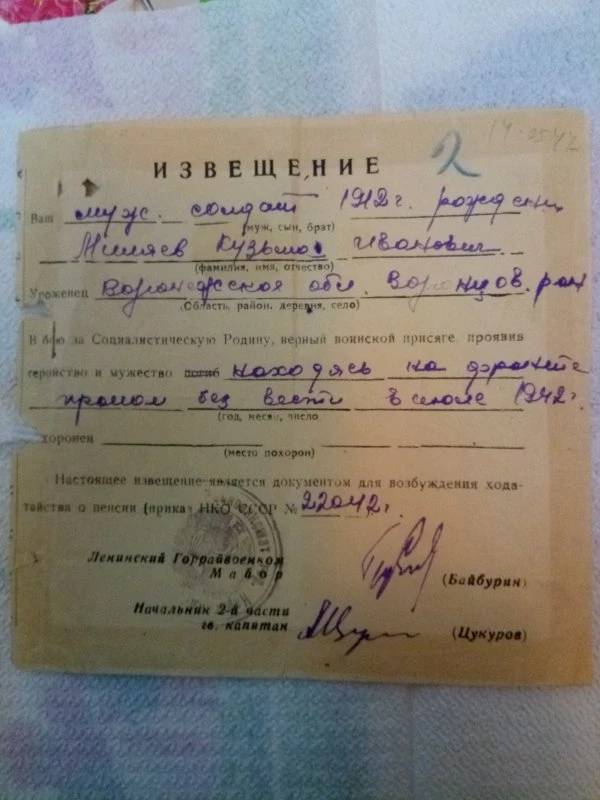 2
ИЗВЕЩЕНИЕ
Ваш муж. солдат 1912 г. рожден
(муж, сын, брат)
Миляев Кузьма Иванович
(фамилия, имя, отчество)
Уроженец Воронежская обл. Воронцов. рай
(Область, район, деревня, село)
В бою за Социалистическую Родину, верный воинской присяге, проявив
геройство и мужество погиб находясь на фронте
пропал без вести в июле 1942 г.
(год, месяц, число
хоронен
(место похорон)
Настоящее извещение является документом для возбуждения хода-
тайства о пенсии (приказ НКО СССР № 220 42 г.
Ленинский Горрайвоенком
Майор (Байбурин)
Начальник 2-й части
гв. капитан (Цукуров)